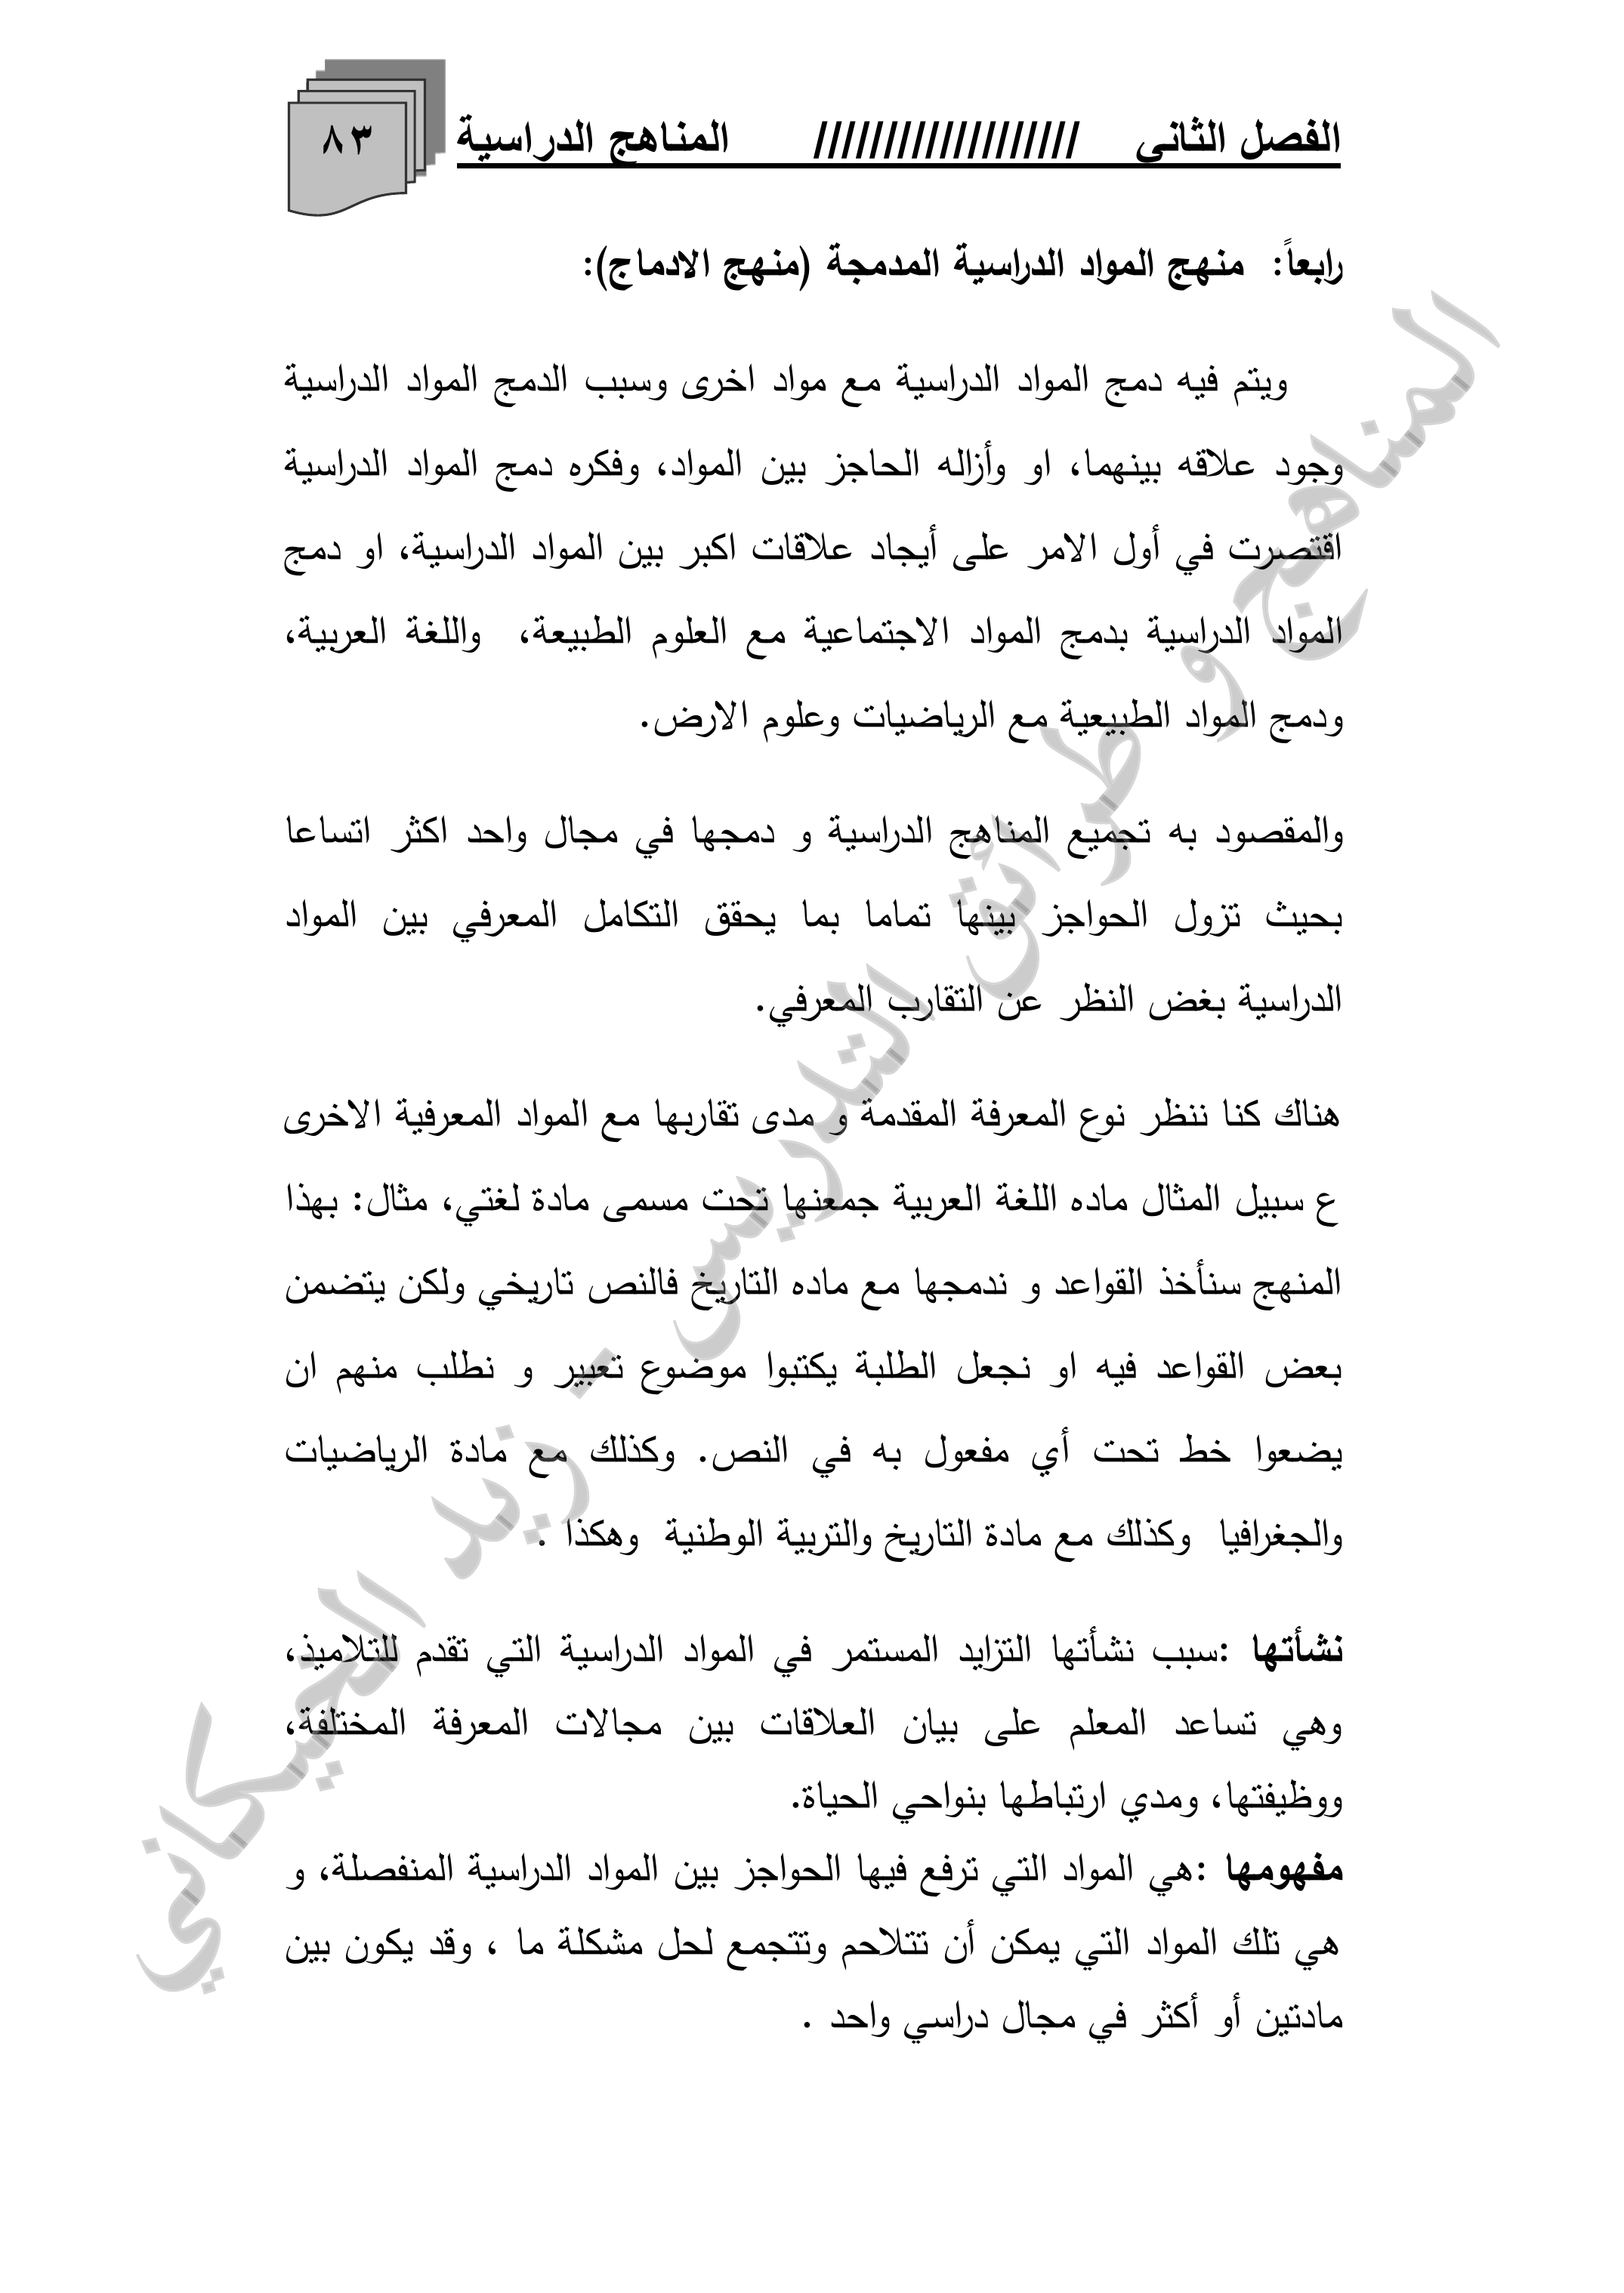 الفصل الثاني /////////////////// المناهج الدراسية ٨٣
رابعاً: منهج المواد الدراسية المدمجة (منهج الادماج):
ويتم فيه دمج المواد الدراسية مع مواد اخرى وسبب الدمج المواد الدراسية
وجود علاقه بينهما، او وأزاله الحاجز بين المواد، وفكره دمج المواد الدراسية
اقتصرت في أول الامر على أيجاد علاقات اكبر بين المواد الدراسية، او دمج
المواد الدراسية بدمج المواد الاجتماعية مع العلوم الطبيعة، واللغة العربية،
ودمج المواد الطبيعية مع الرياضيات وعلوم الارض.
والمقصود به تجميع المناهج الدراسية و دمجها في مجال واحد اكثر اتساعا
بحيث تزول الحواجز بينها تماما بما يحقق التكامل المعرفي بين المواد
الدراسية بغض النظر عن التقارب المعرفي.
هناك كنا ننظر نوع المعرفة المقدمة و مدى تقاربها مع المواد المعرفية الاخرى
ع سبيل المثال ماده اللغة العربية جمعنها تحت مسمى مادة لغتي، مثال: بهذا
المنهج سنأخذ القواعد و ندمجها مع ماده التاريخ فالنص تاريخي ولكن يتضمن
بعض القواعد فيه او نجعل الطلبة يكتبوا موضوع تعبير و نطلب منهم ان
يضعوا خط تحت أي مفعول به في النص. وكذلك مع مادة الرياضيات
والجغرافيا وكذلك مع مادة التاريخ والتربية الوطنية وهكذا .
نشأتها :سبب نشأتها التزايد المستمر في المواد الدراسية التي تقدم للتلاميذ،
وهي تساعد المعلم على بيان العلاقات بين مجالات المعرفة المختلفة،
ووظيفتها، ومدي ارتباطها بنواحي الحياة.
مفهومها :هي المواد التي ترفع فيها الحواجز بين المواد الدراسية المنفصلة، و
هي تلك المواد التي يمكن أن تتلاحم وتتجمع لحل مشكلة ما ، وقد يكون بين
مادتين أو أكثر في مجال دراسي واحد .
المناهج و طرائق التدريس - زيد الخيكاني